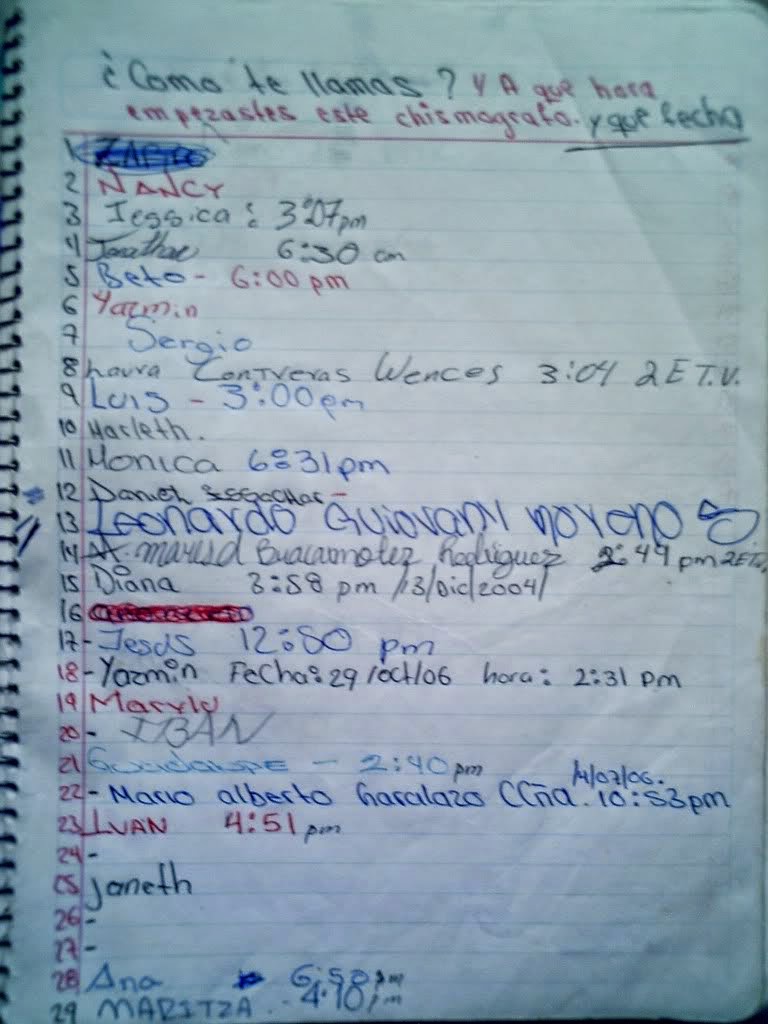 ¿Como te llamas? Y A que hora
empezastes este chismografo. y que fecha
1
2 NANCY
3 Jessica: 3:07pm
4 Jonathan 6:30 am
5 Beto - 6:00 pm
6 Yazmin
7 Sergio
8 Laura Contreras Wences 3:04 2E T.V.
9 Luis - 3:00pm
10 Harleth.
11 Monica 6:31pm
12 Daniel
13 Leonardo Guiovany moreno
14 Rodriguez 2:49 pm 2E T.V.
15 Diana 3:58 pm /13/Dic/2004/
16
17- Jesus 12:50 pm
18- Yazmin Fecha: 29/oct/06 hora: 2:31 pm
19
20- IBAN
21 Guadalupe - 2:40pm
22- Mario alberto 14/07/06. 10:53pm
23 IVAN 4:51 pm
24-
25 Janeth
26-
27-
28 Ana 6:58 pm
29 MARITZA - 4:10 pm